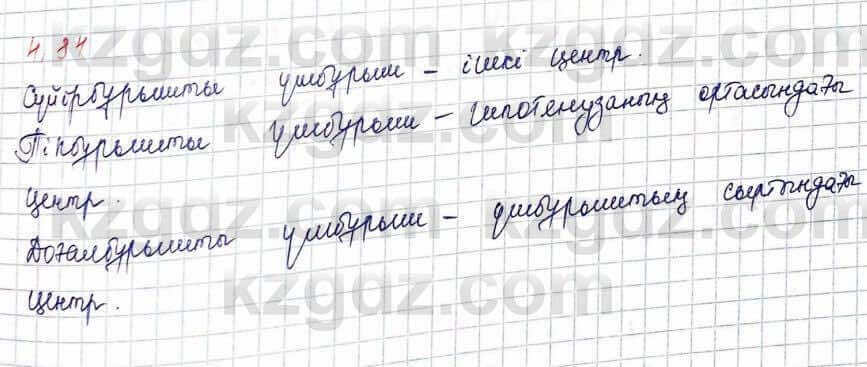 4.84
Сүйірбұрышты үшбұрыш – ішкі центр.
Тікбұрышты үшбұрыш – гипотенузаның ортасындағы
центр.
Доғалбұрышты үшбұрыш – үшбұрыштың сыртындағы
центр.
kzgdz.com
kzgdz.com
kzgdz.com
kzgdz.com